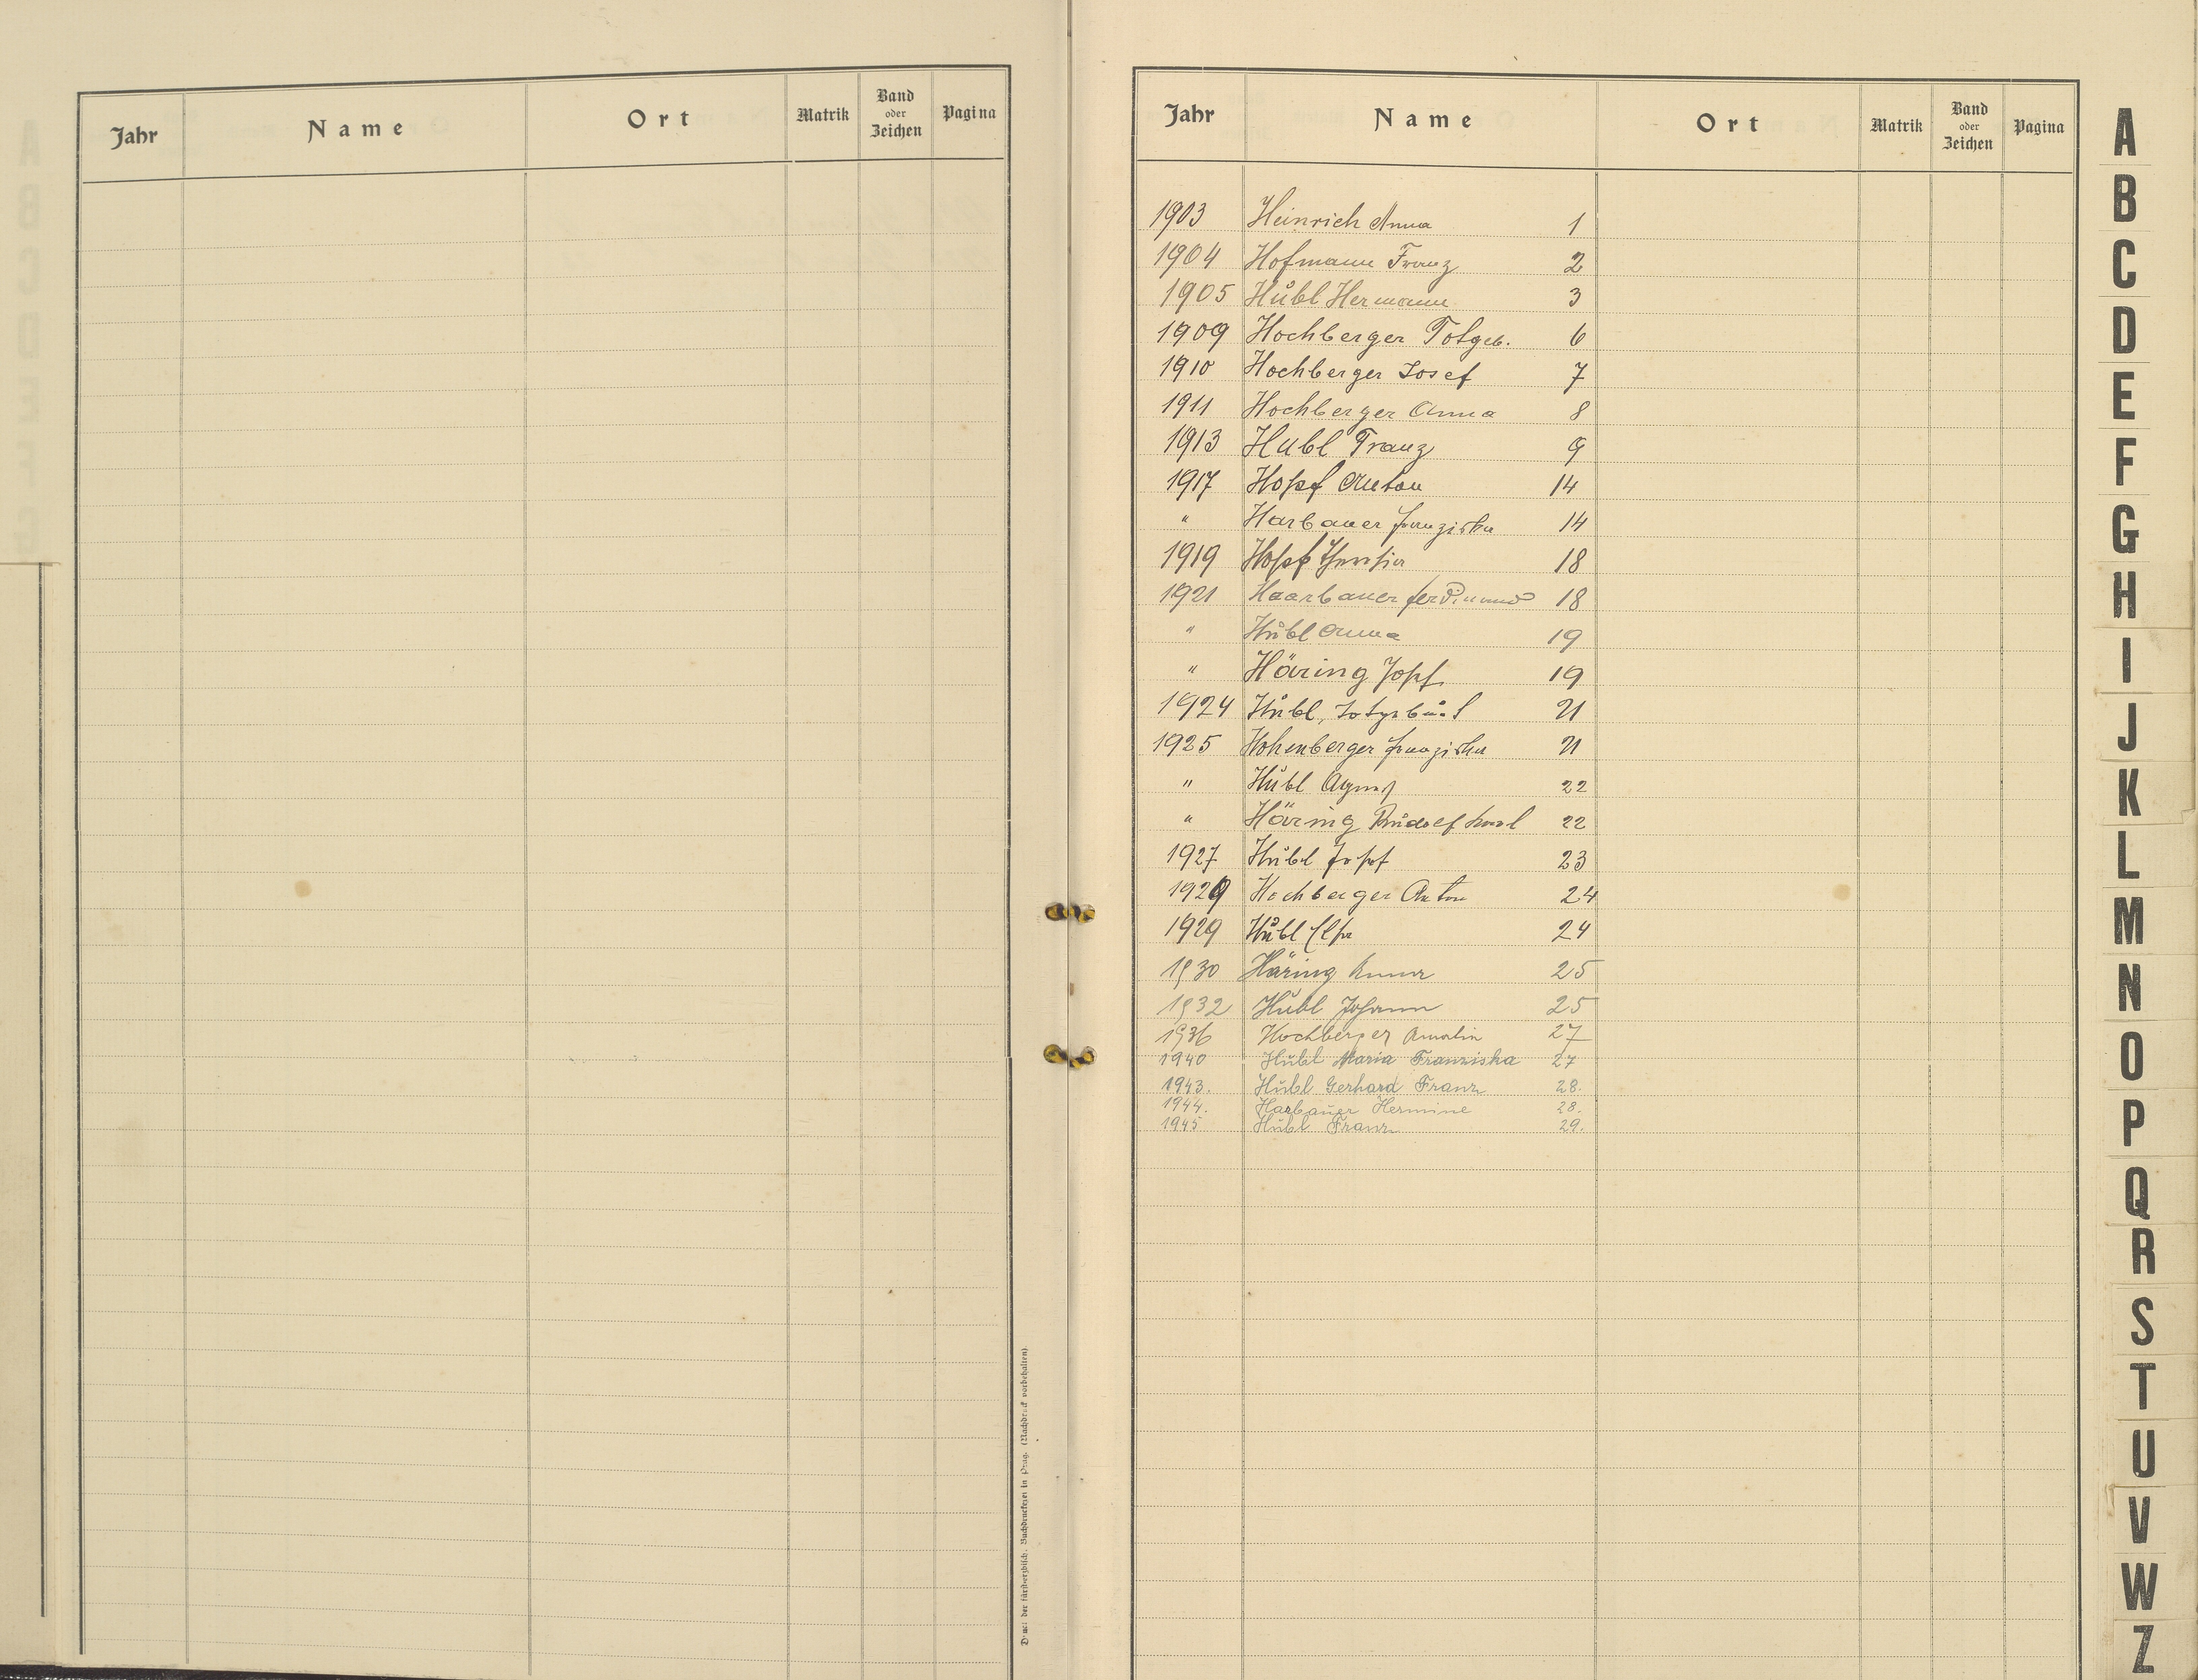 Jahr Name Ort Matrik Band oder Zeichen Pagina
Druck der fürsterzbisch. Buchdruckerei in Prag. (Nachdruck vorbehalten)
Jahr Name Ort Matrik Band oder Zeichen Pagina
1903 Heinrich Anna 1
1904 Hofmann Franz 2
1905 Hübl Hermann 3
1909 Hochberger Totgeb. 6
1910 Hochberger Josef 7
1911 Hochberger Anna 8
1913 Hubl Franz 9
1917 Hopf Anton 14
" Harbauer Franziska 14
1919 Hopf Theresia 18
1921 Haarbauer Ferdinand 18
" Hübl Anna 19
" Häring Josef 19
1924 Hübl, 21
1925 Hohenberger Franziska 21
" Hübl Agnes 22
" Häring Rudolf Karl 22
1927 Hübl Josef 23
1929 Hochberger Anton 24
1929 Hübl Elsa 24
1930 Häring Anna 25
1932 Hübl Johann 25
1936 Hochberger Amalia 27
1940 Hübl Maria Franziska 27
1943. Hübl Gerhard Franz 28.
1944. Harbauer Hermine 28.
1945 Hübl Franz 29.
A
B
C
D
E
F
G
H
I
J
K
L
M
N
O
P
Q
R
S
T
U
V
W
Z